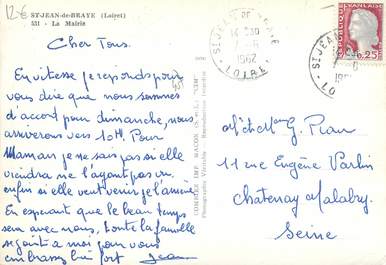 12€
ST-JEAN-de-BRAYE (Loiret)
531 - La Mairie
Cher Tous.
En vitesse je reponds pour
vous dire que nous sommes
d'accord pour dimanche, nous
arriverons vers 10H. Pour
Maman je ne sais pas si elle
viendra ne l'ayant pas vu
enfin si elle veut venir je l'amène
En esperant que le beau temps
sera avec nous, toute la famille
se joint a moi pour vous
embrasser bien fort Jean
COMBIER IMP. MACON (S.-et-L.) "CIM"
Photographie Véritable - Reproduction interdite
ST JEAN DE BRAYE
1962
LOIRET
ST JEAN
REPUBLIQUE FRANÇAISE
0,25F
M et Mme G. Plan
11 rue Eugène Varlin
Chatenay Malabry.
Seine